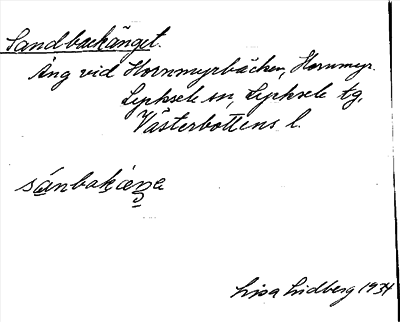 Sandbackänget.
Äng vid Hornmyrbäcken, Hornmyr.
Lycksele sn, Lycksele tg,
Västerbottens l.
sánbakæŋe
Lisa Lidberg 1934